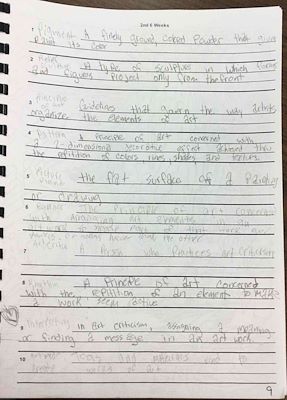 2nd 6 Weeks
1 Pigment A finely ground, colored Powder that gives
Paint its color
2 Relief A type of sculpture in which forms
and figures project only from the front
3 Principle of art Guidelines that govern the way artists
organize the elements of art
4 Pattern A Principle of art concernet with
a 2-dimensional decorative effect achieved thru
the repitition of colors, lines, shades and textures.
5 Picture the flat surface of a Painting
or drawing
6 The Principle of art concerns
with arranging art elements in
art
7 A Person who Practices art criticism
8 Rhythm A Principle of art concerned
with the repitition of an element to make
a work seem active
9 Interpreting in art criticism, assigning a meaning
or finding a message in an art work
10 Tools and materials used to
create works of art
9